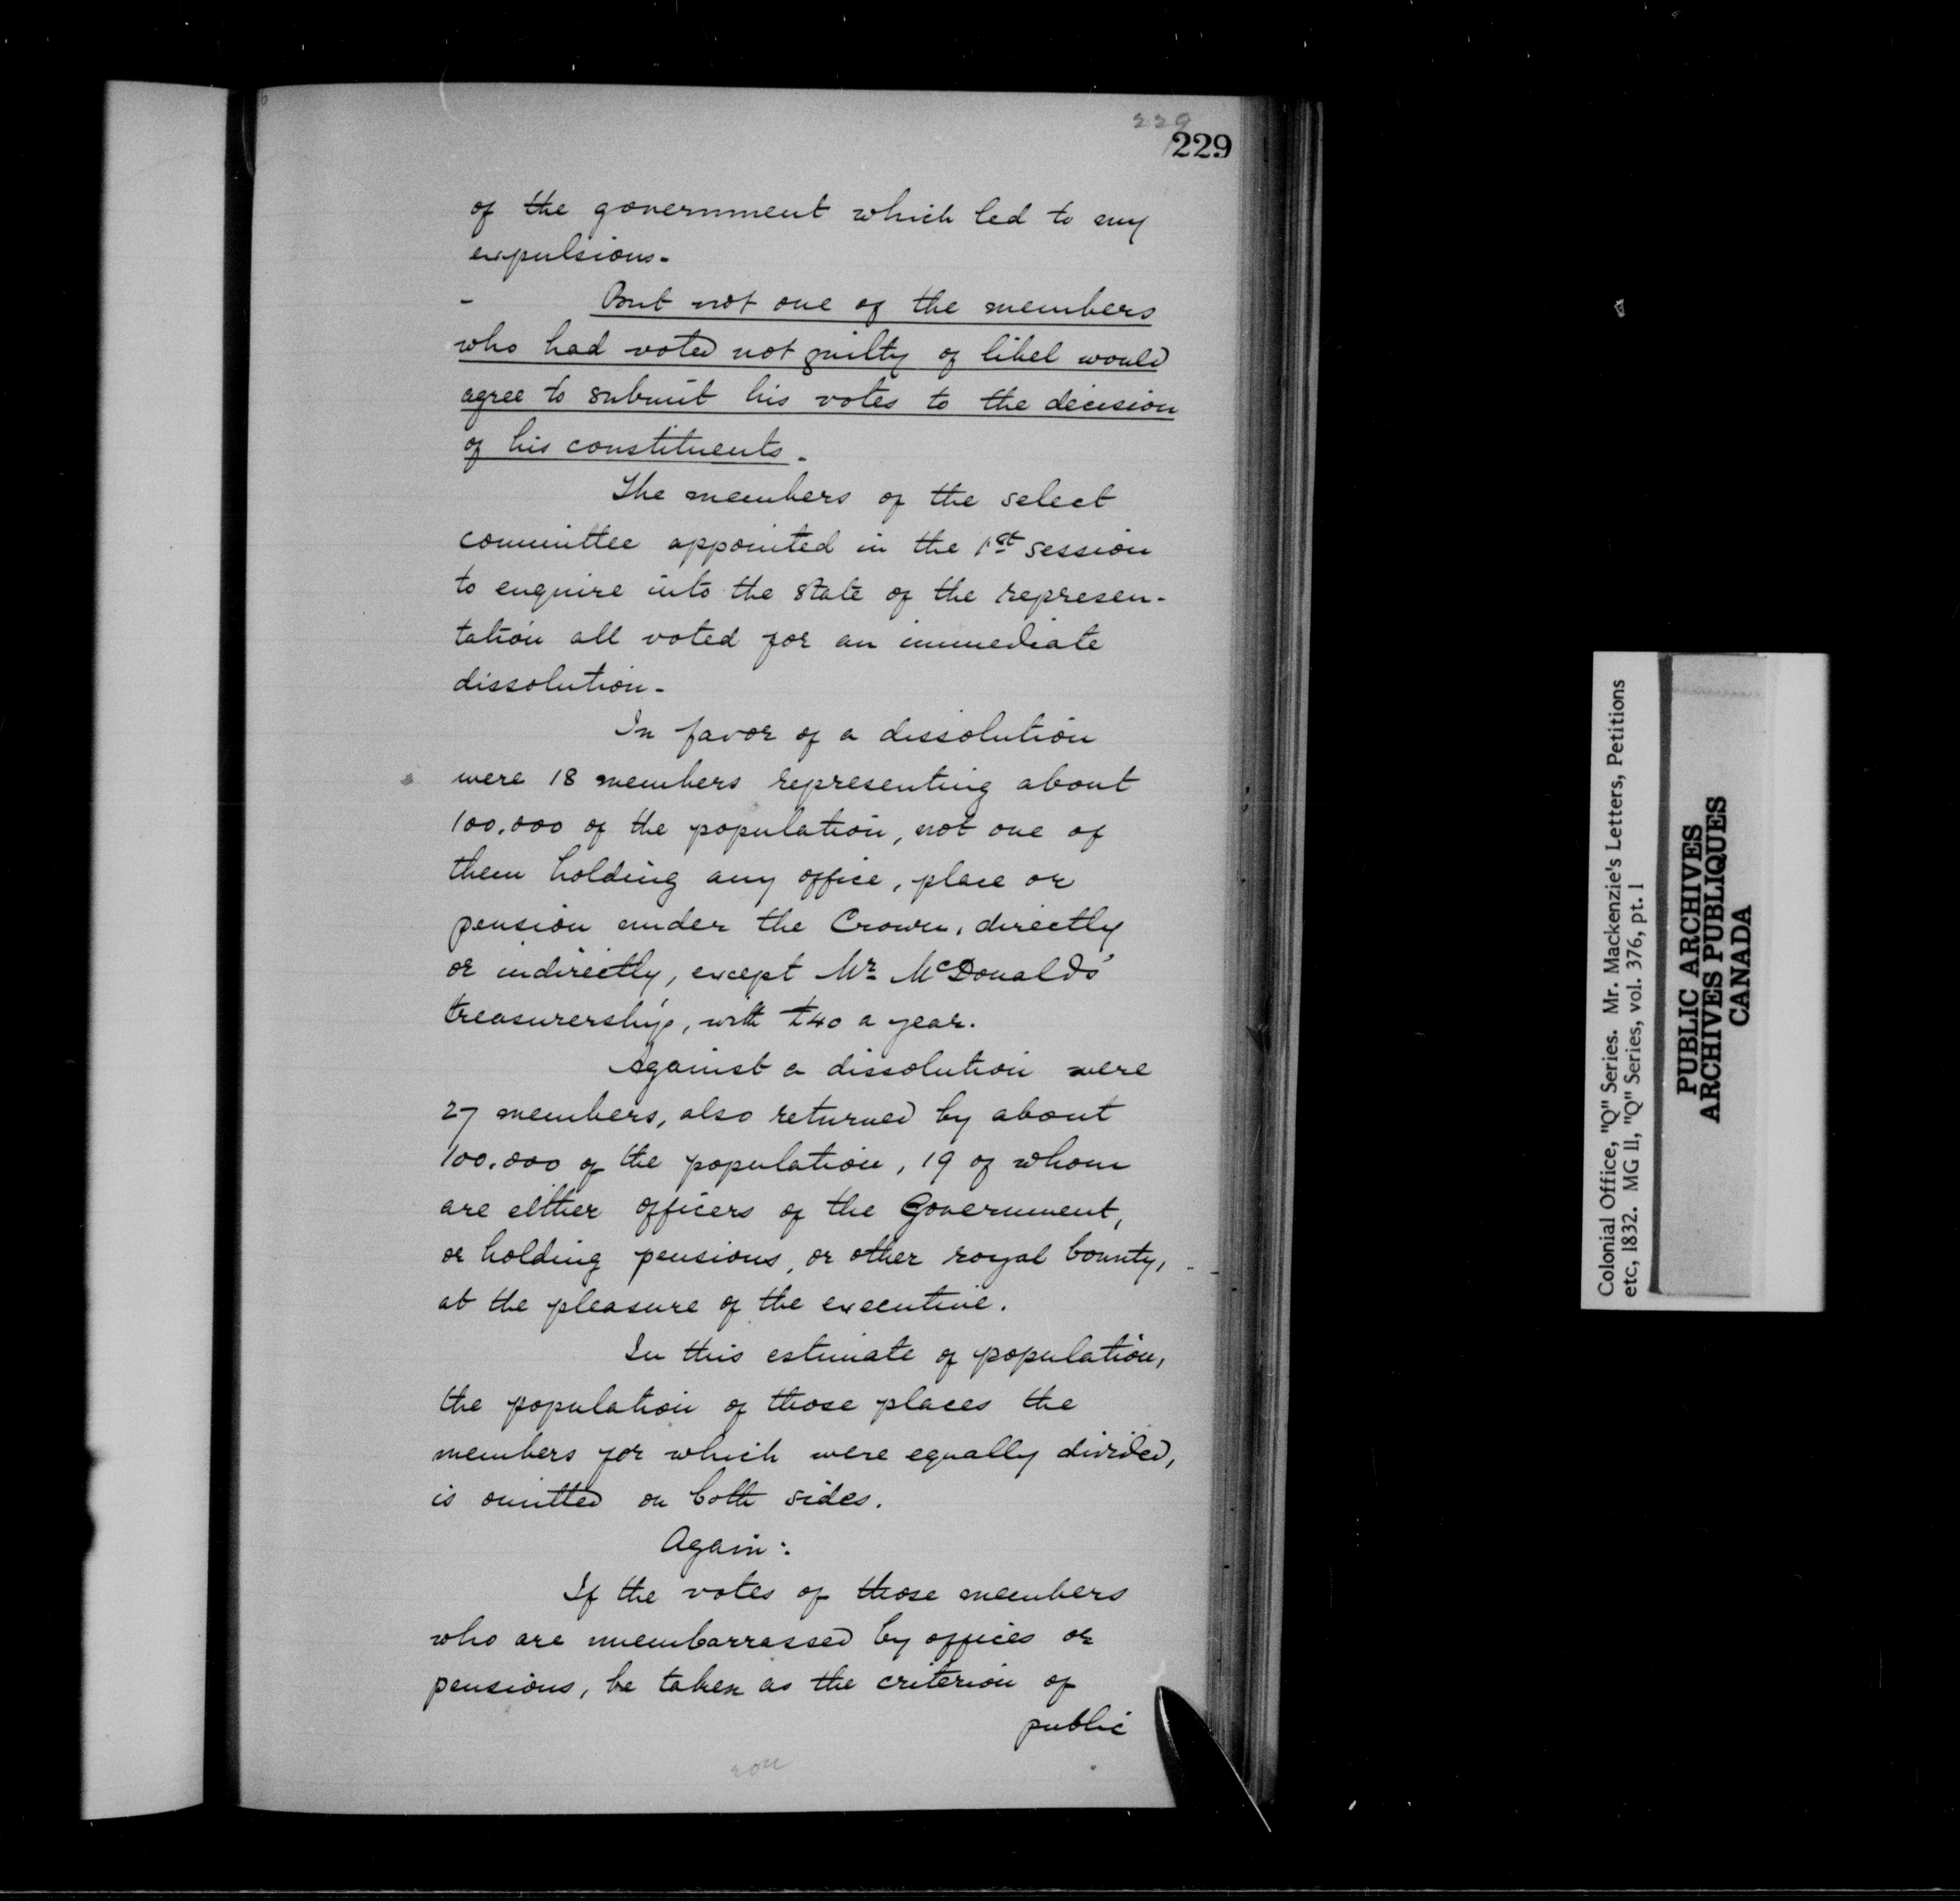 229
229
of the government which led to my
expulsions.
- But not one of the members
who had voted not guilty of libel would
agree to submit his votes to the decision
of his constituents.
The members of the select
committee appointed in the 1st session
to enquire into the state of the represen-
tation all voted for an immediate
dissolution.
In favor of a dissolution
were 18 members representing about
100.000 of the population, not one of
them holding any office, place or
pension under the Crown, directly
or indirectly, except Mr McDonalds'
treasurership, with £40 a year.
Against a dissolution were
27 members, also returned by about
100.000 of the population, 19 of whom
are either officers of the Government,
or holding pensions, or other royal bounty,
at the pleasure of the executive.
In this estimate of population,
the population of those places the
members for which were equally divided,
is omitted on both sides.
Again:
If the votes of those members
who are unembarrassed by offices or
pensions, be taken as the criterion of
public
Colonial Office, "Q" Series. Mr. Mackenzie's Letters, Petitions
etc, 1832. MG 11, "Q" Series, vol. 376, pt. 1
PUBLIC ARCHIVES
ARCHIVES PUBLIQUES
CANADA